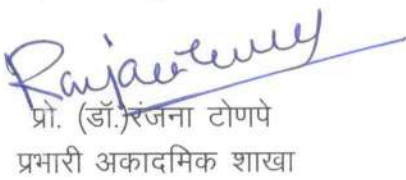 प्रो. (डॉ.)रंजना टोणपे
प्रभारी अकादमिक शाखा